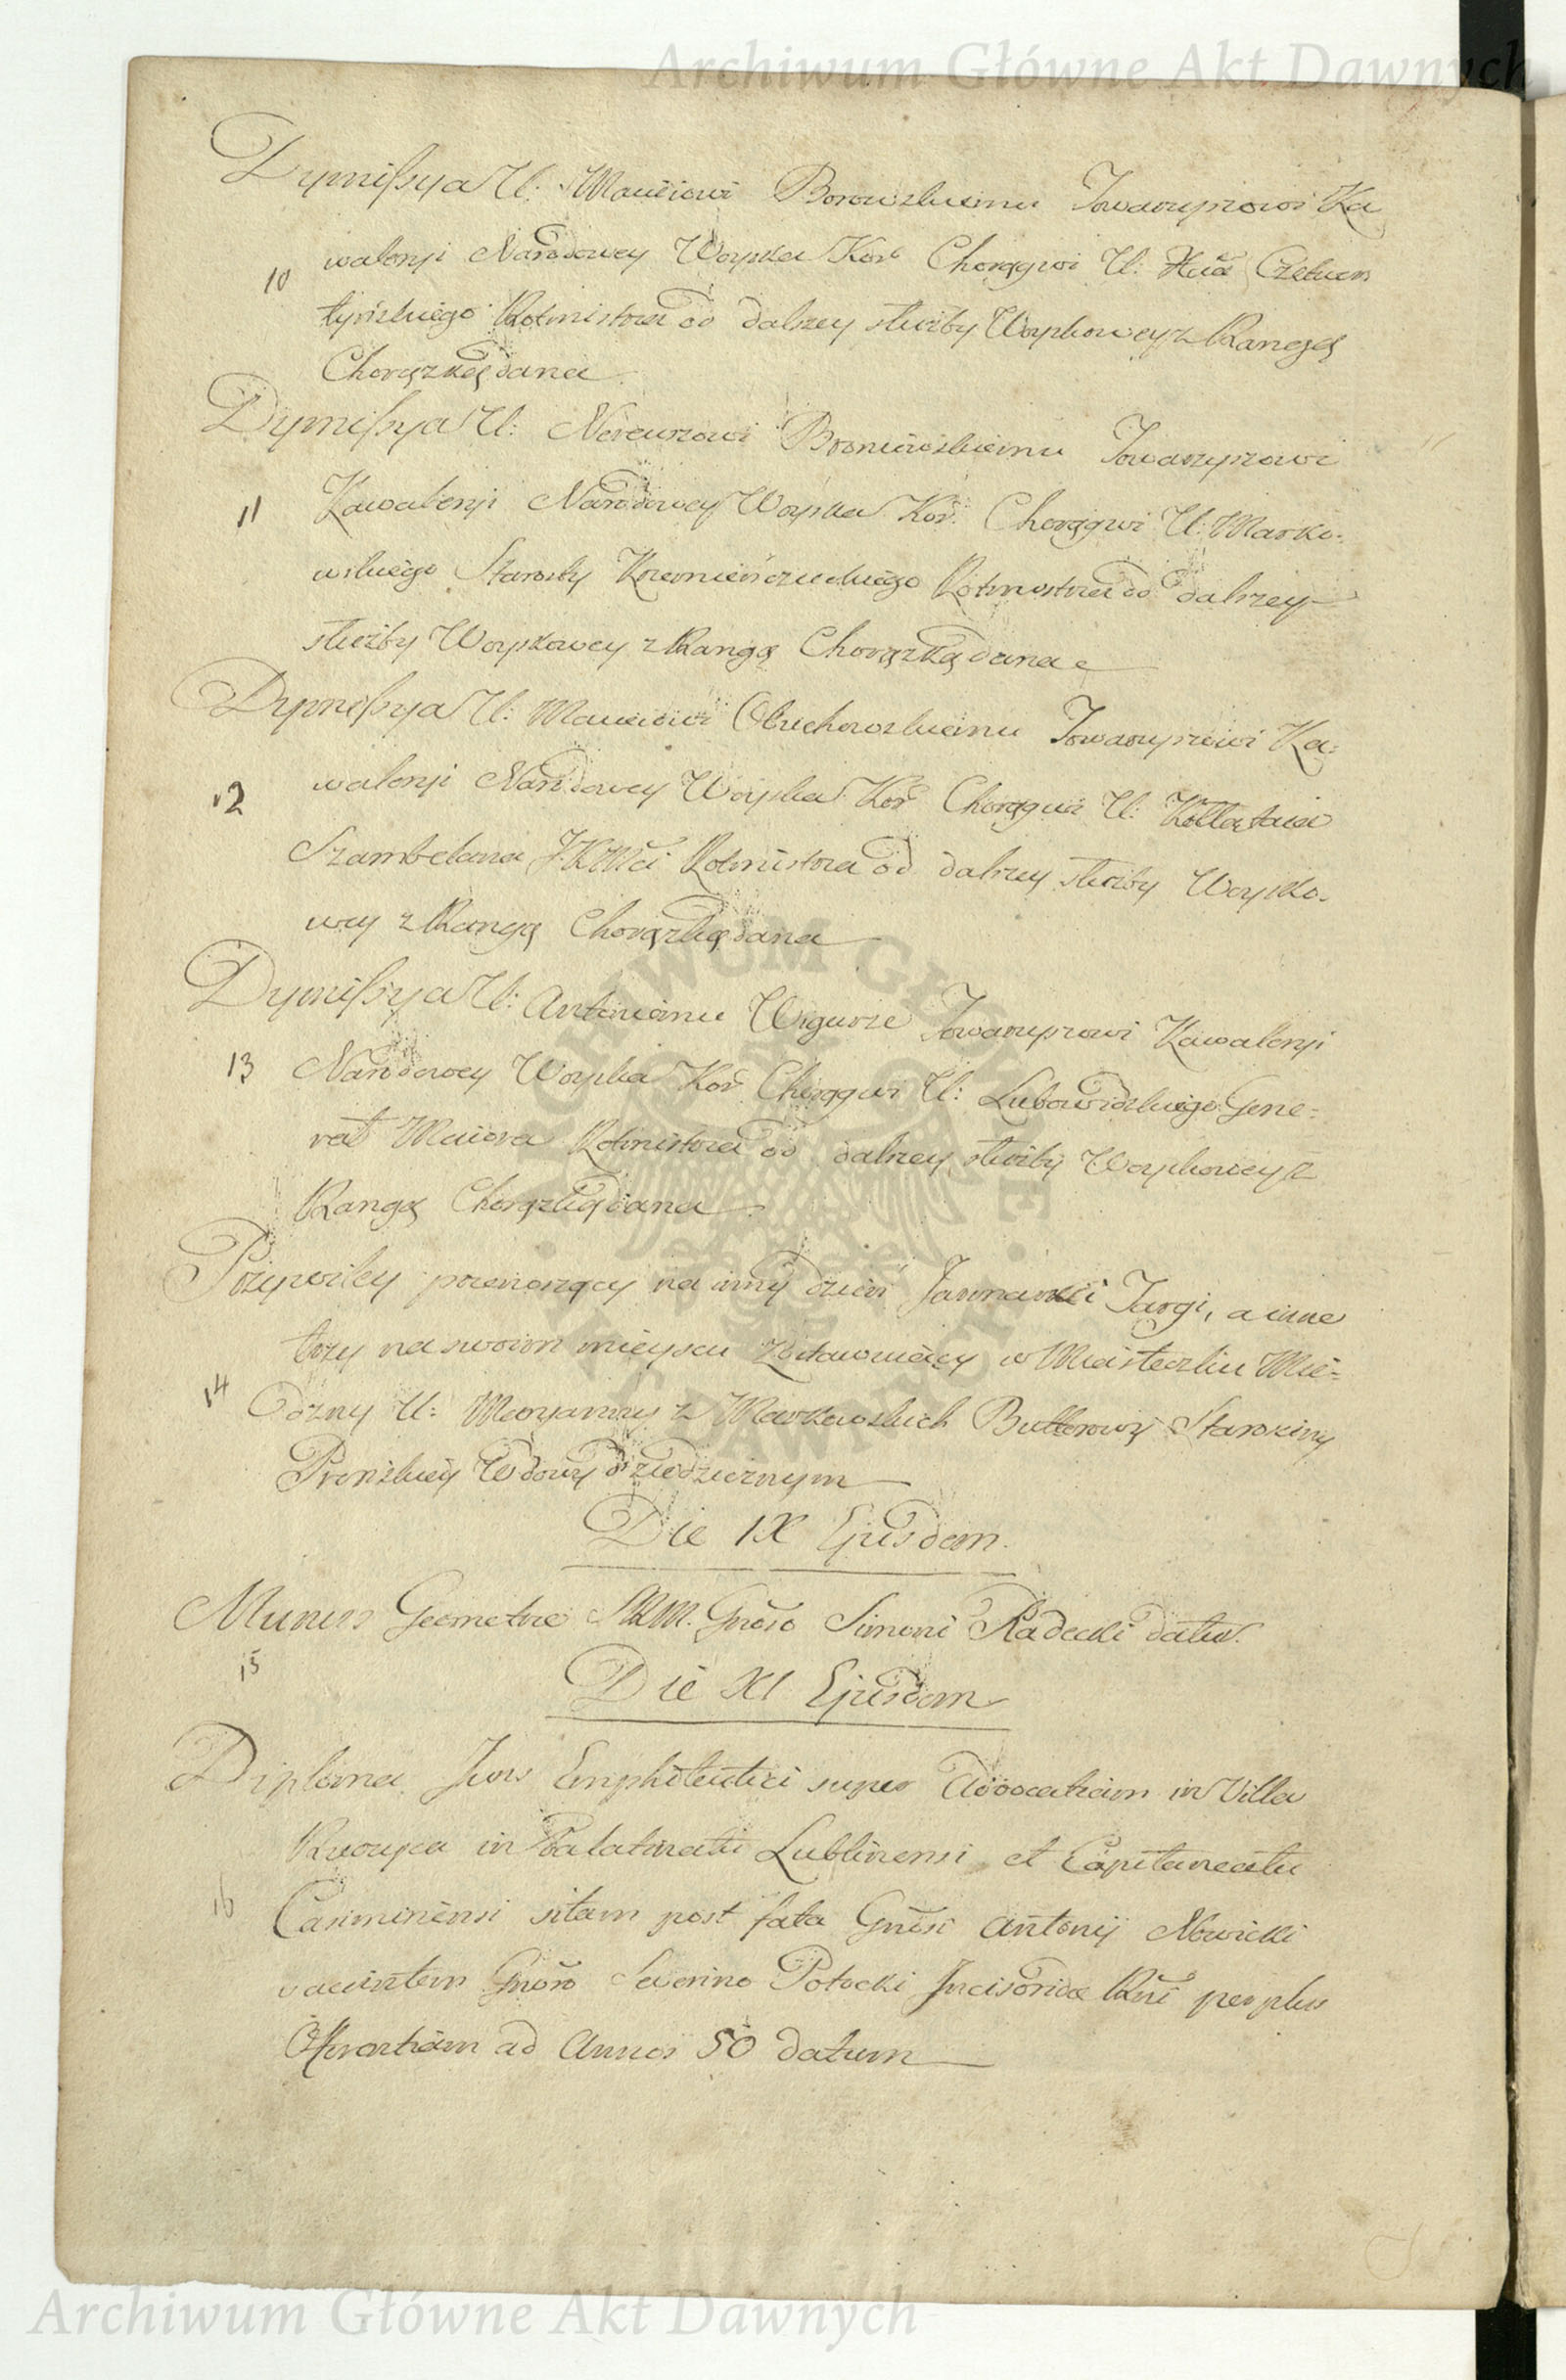 Archiwum Główne Akt Dawnych
Dymissya U: Maciiowi Borowskiemu Towarzyszowi Ka
10 waleryi Narodowey Woyska Kor Chorągwi U: Xcia Czetwer
tyńskiego Rotmistrza od dalszey służby Woyskowey z Rangą
Chorążską dana
Dymissya U: Broniewskiemu Towarzyszowi
11 Kawaleryi Narodowey Woyska Kor: Chorągwi U: Marko:
wskiego Starosty Rotmistrza od dalszey
służby Woyskowey z Rangą Chorążką dana
Dymissya U: Maciiowi Obuchowskiemu Towarzyszowi Ka:
12 waleryi Narodowey Woyska Kor Chorągwi U: Kołłątaia
Szambelana J.K.Mci Rotmistrza od dalszey służby Woysko.
wey z Rangą Chorążką dana
Dymissya U: Antoniemu Wigurze Towarzyszowi Kawaleryi
13 Narodowey Woyska Kor Chorągwi U: Lubowidzkiego Gene:
rał Maiora Rotmistrza od dalszey służby Woyskowey z
Rangą Chorążką dana
Przywiley przenoszący na inny dzień Jarmarki Targi, a inne
trzy na swoim mieyscu zostawuiący w Miasteczku Mie:
14 dzny U: Maryanny z Markowskich Butlerowy Starościny
Preńskiey Wdowy dziedzicznym
Die IX Ejusdem.
Munus Geometrae SRM. Gnoso Simoni Radecki datur.
15
Die XI Ejusdem
Diploma Juris Emphiteutici super Advocatiam in Villa
in Palatinatu Lublinensi et Capitaneatu
16 Casimiriensi sitam post fata Gnosi Antonij Nowicki
vacantem Gnoso Severino Potocki Incisoridae Rni per plus
Offerentiam ad Annos 50 datum
Archiwum Główne Akt Dawnych